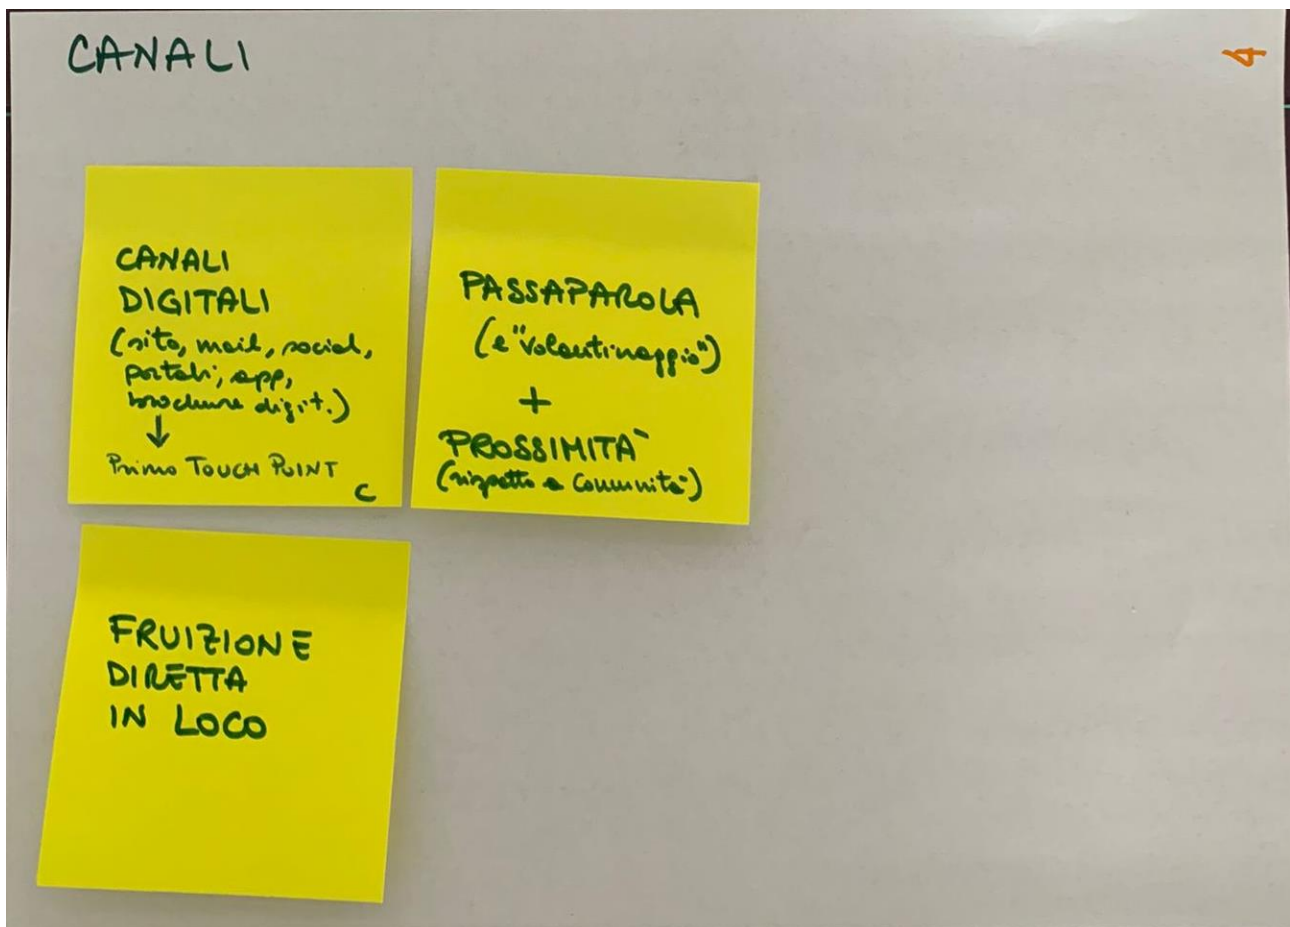 CANALI
4
CANALI
DIGITALI
(sito, mail, social,
portali, app,
brochure digit.)
↓
Primo TOUCH POINT
C
PASSAPAROLA
(e "volantinaggio")
+
PROSSIMITÀ
(rispetto a comunità)
FRUIZIONE
DIRETTA
IN LOCO